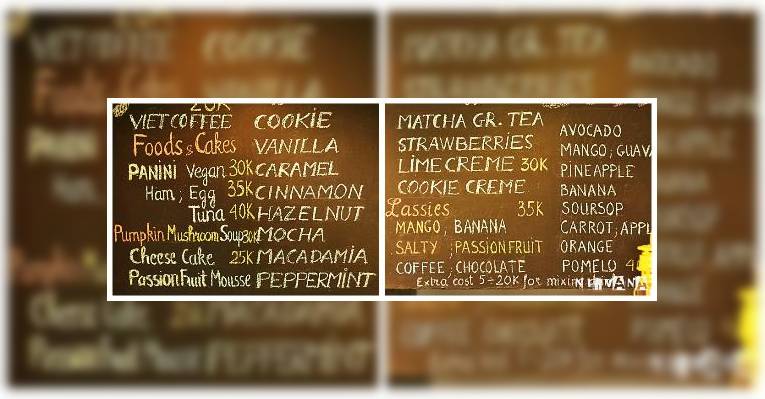 VIET COFFEE
Foods & Cakes
PANINI Vegan 30K
Ham ; Egg 35K
Tuna 40K
Pumpkin Mushroom Soup 30K
Cheese Cake 25K
Passion Fuit Mousse
COOKIE
VANILLA
CARAMEL
CINNAMON
HAZELNUT
MOCHA
MACADAMIA
PEPPERMINT
MATCHA GR. TEA
STRAWBERRIES
LIME CREME 30K
COOKIE CREME
Lassies 35K
MANGO ; BANANA
SALTY ; PASSION FRUIT
COFFEE ; CHOCOLATE
Extra cost 5-20K for mixin
AVOCADO
MANGO ; GUAV
PINEAPPLE
BANANA
SOURSOP
CARROT ; APPL
ORANGE
POMELO